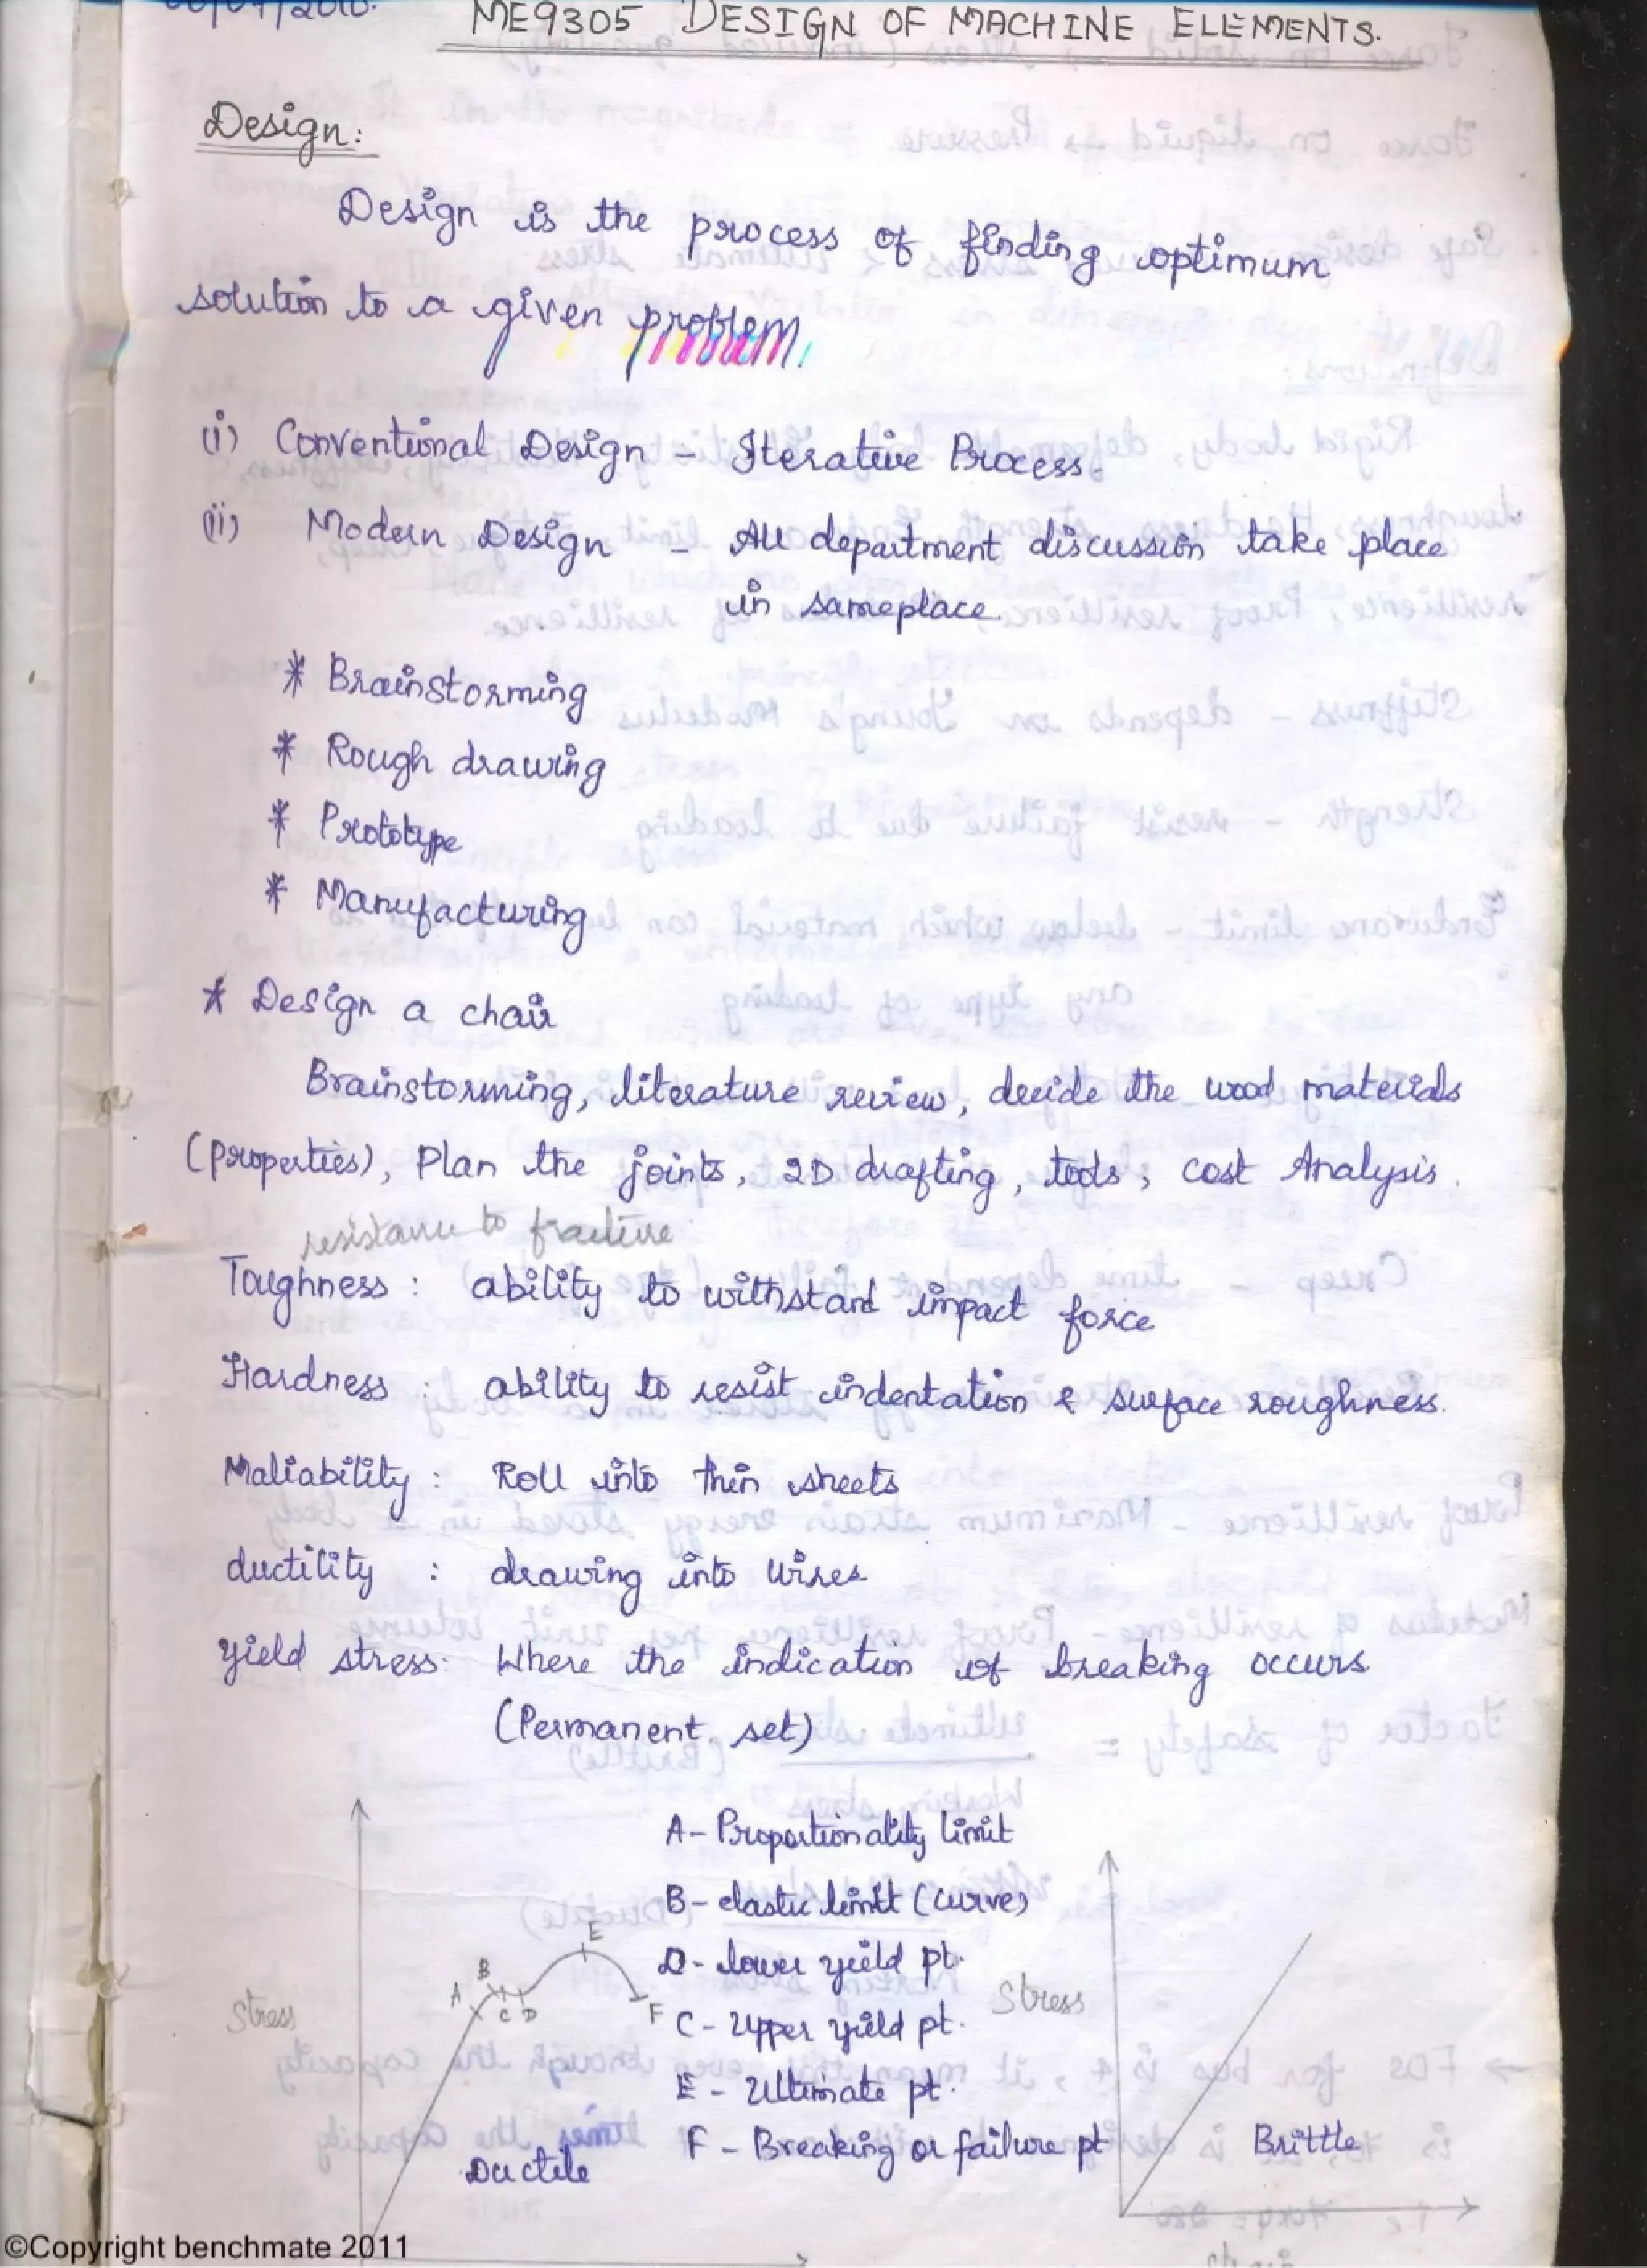 ME9305 DESIGN OF MACHINE ELEMENTS.
Design:
Design is the process of finding optimum
solution to a given problem.
(i) Conventional Design - Iterative Process.
(ii) Modern Design - All department discussion take place
in sameplace.
* Brainstorming
* Rough drawing
* Prototype
* Manufacturing
* Design a chair
Brainstorming, literature review, decide the wood materials
(properties), Plan the joints, 2D drafting, tools, cost Analysis.
resistance to fracture
Toughness : ability to withstand impact force
Hardness : ability to resist indentation & surface roughness.
Maliability : Roll into thin sheets
ductility : drawing into wires
Yield stress: Where the indication of breaking occurs
(Permanent set)
A - Proportionality limit
B - elastic limit (curve)
D - lower yield pt.
C - Upper yield pt.
E - Ultimate pt.
F - Breaking or failure pt
Stress
A
B
C D
E
F
Ductile
Stress
Brittle
©Copyright benchmate 2011